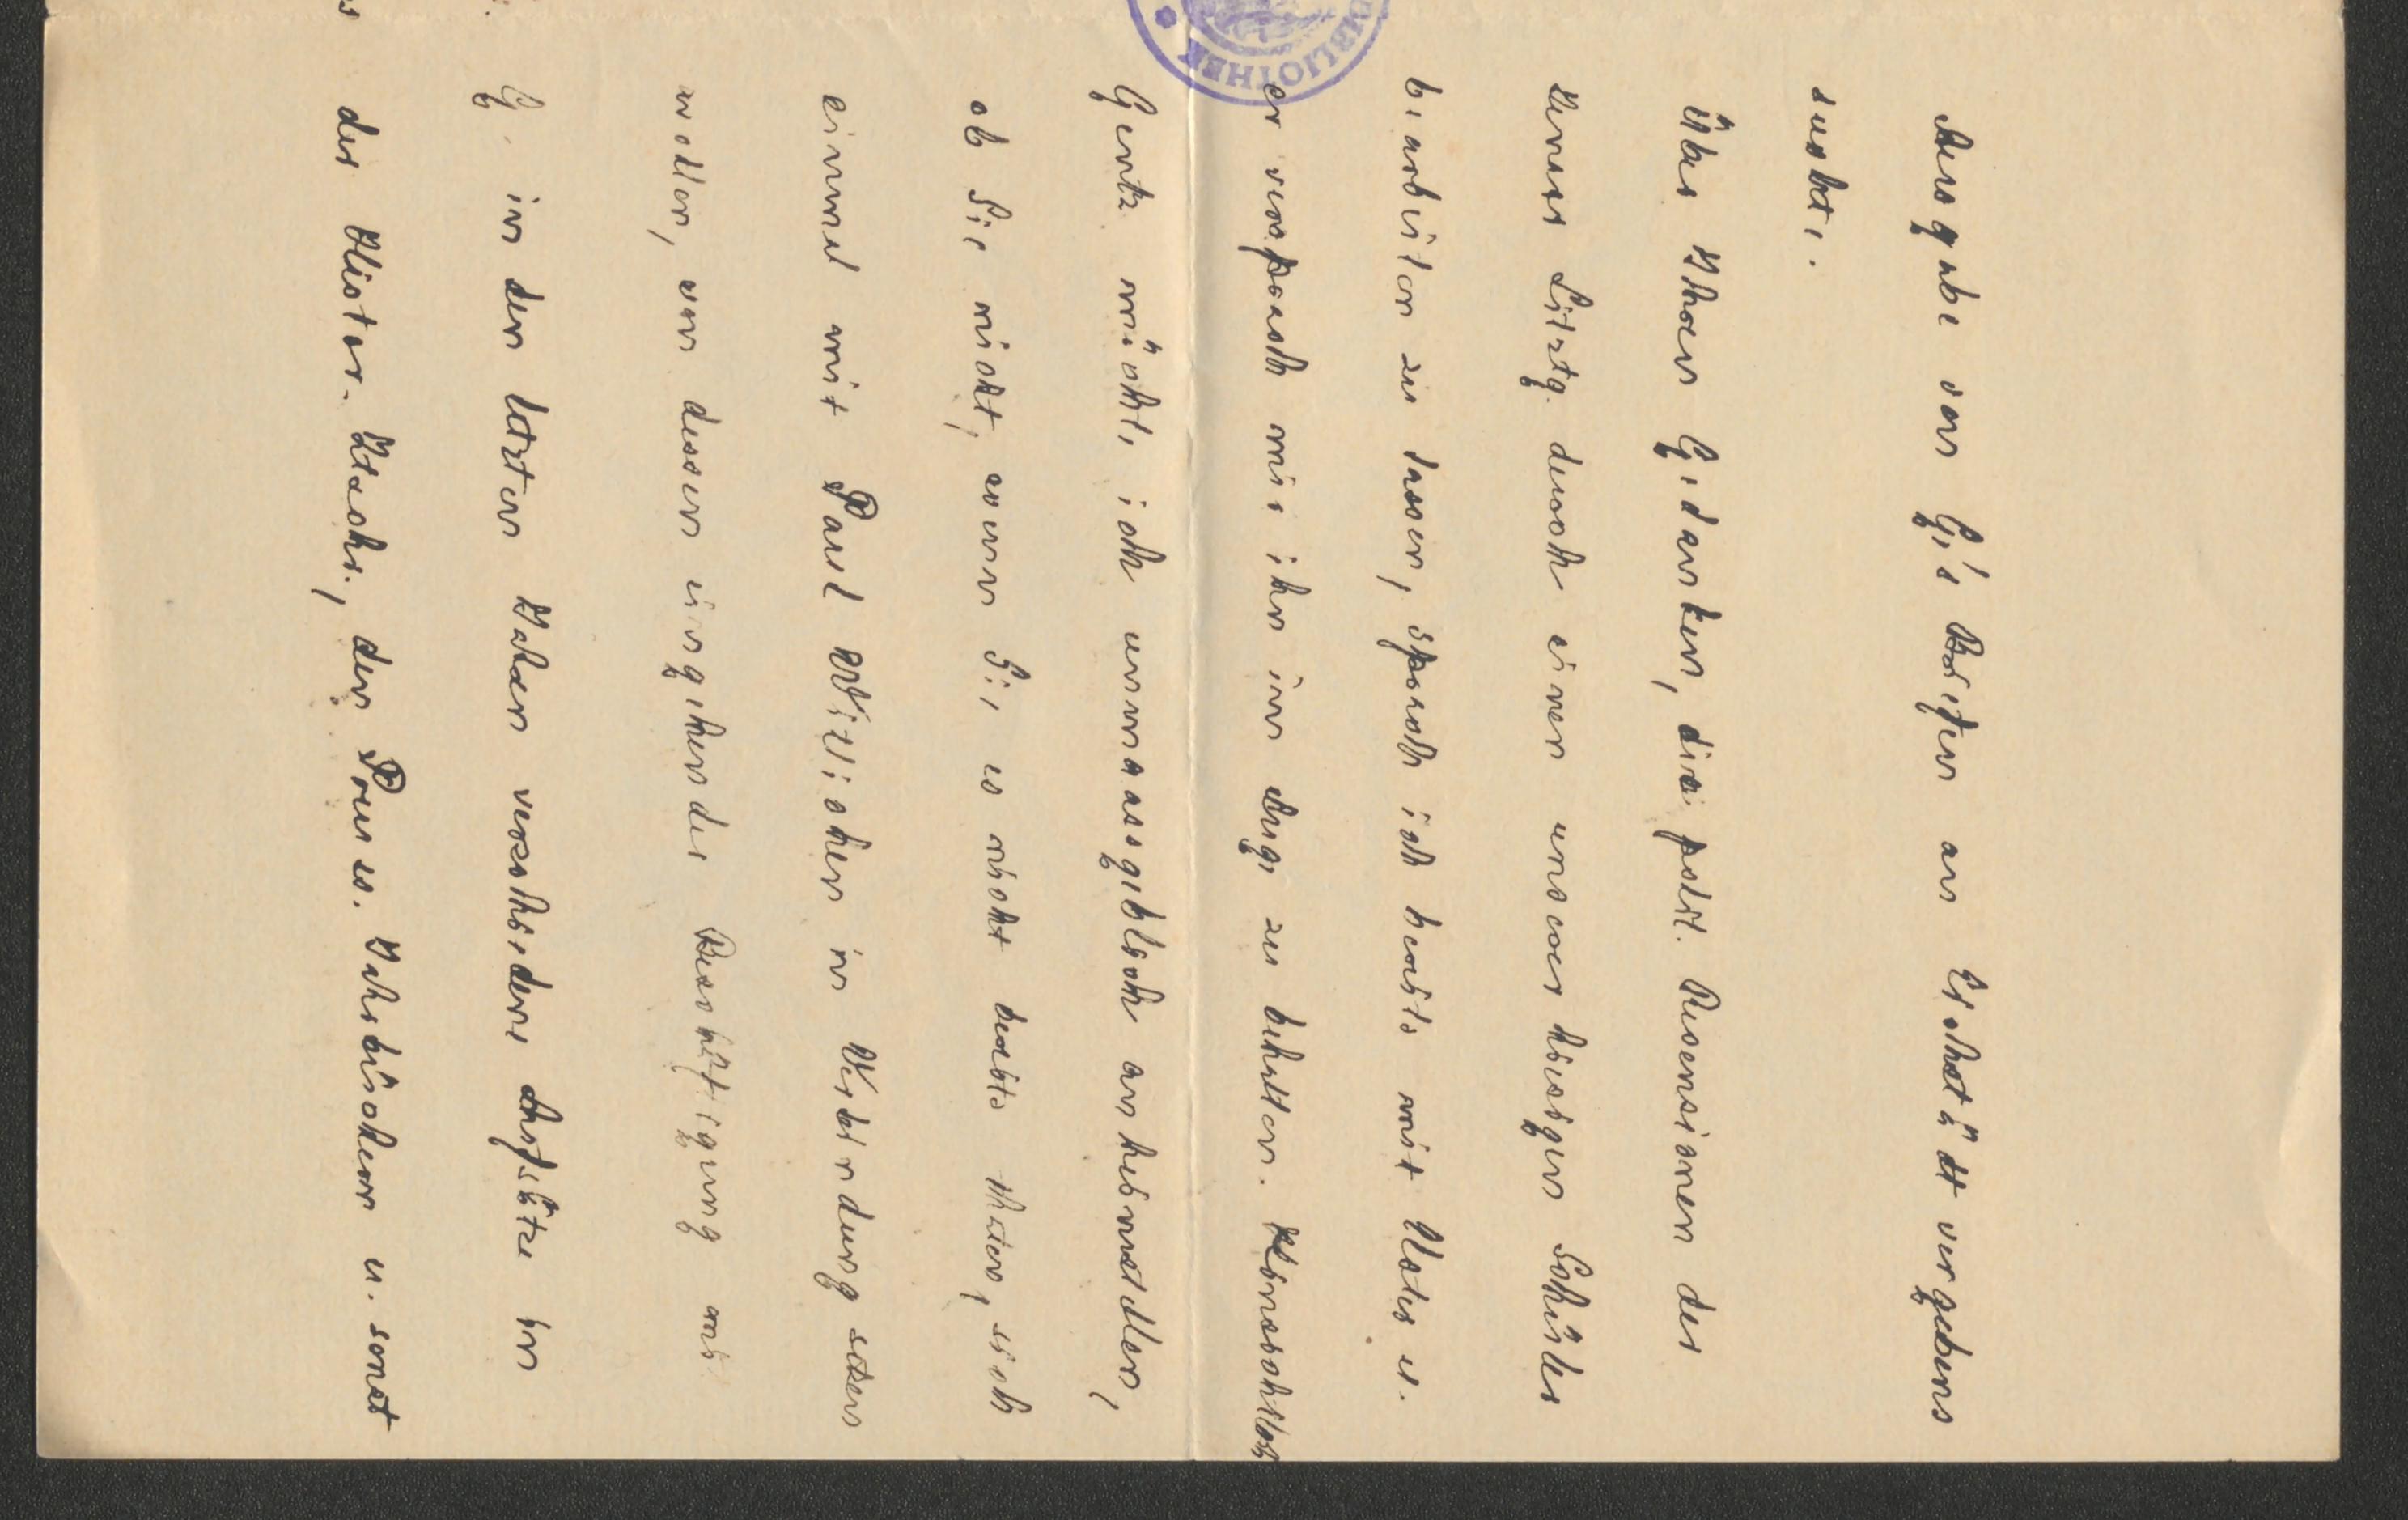 Ausgabe von G.'s Briefen an Eichstädt vergebens
suchte.
Über Ihren Gedanken, die polit. Rezensionen der
Jenaer Litztg. durch einen unserer hiesigen Schüler
bearbeiten zu lassen, sprach ich bereits mit Vater u.
er versprach mir ihn im Auge zu behalten. Hinsichtlich
Gentz möchte ich unmassgeblich anheimstellen,
ob Sie nicht, wenn Sie es nicht bereits thaten, sich
einmal mit Paul Wittichen in Verbindung setzen
wollen, von dessen eingehender Beschäftigung mit
G. in den letzten Jahren verschiedene Aufsätze in
der Histor. Ztschr., den Preuss. Jahrbüchern u. sonst
BIBLIOTHEK